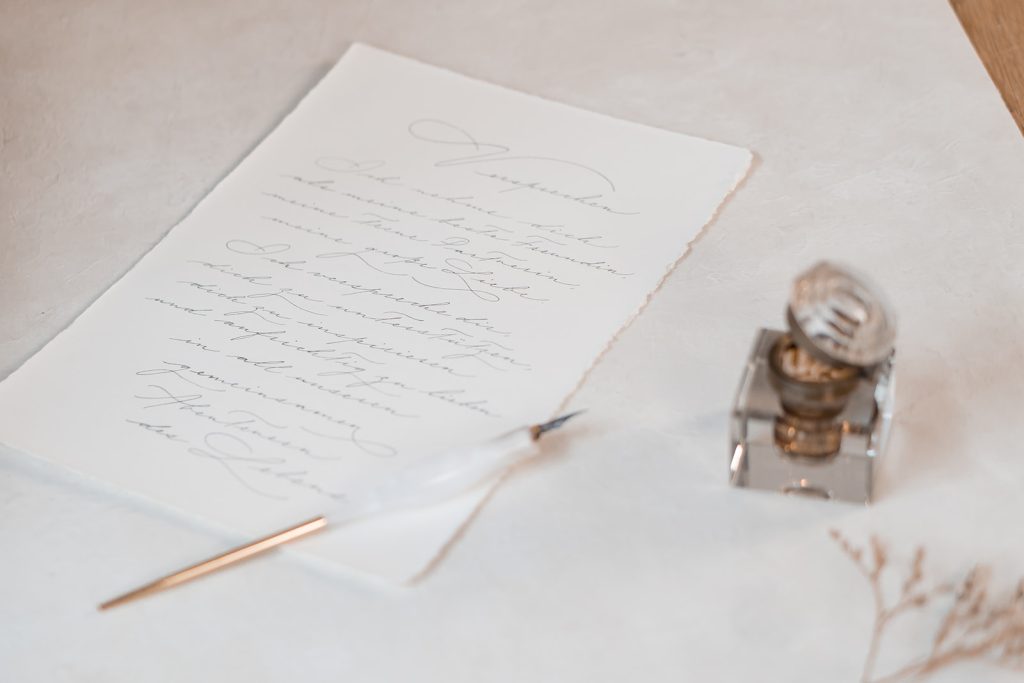 Versprechen
Ich nehme dich
als meine beste Freundin,
meine Treue Partnerin,
meine große Liebe.
Ich verspreche dir,
dich zu unterstützen,
dich zu inspirieren
und aufrichtig zu lieben
in all unseren
gemeinsamen
Abenteuern
des Lebens